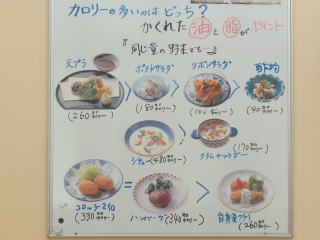 カロリーの多いのは どっち?
かくれた 油 と 脂 が ポイント
『同じ量の野菜でも…』
天プラ > ポテトサラダ > リボンサラダ > 酢の物
(260キロカロリー) (180キロカロリー) (100キロカロリー) (40キロカロリー)
シチュー (480キロカロリー) > クラムチャウダー (170キロカロリー)
コロッケ 2個 < ハンバーグ > 白身魚フライ
(330キロカロリー) (340キロカロリー) (260キロカロリー)